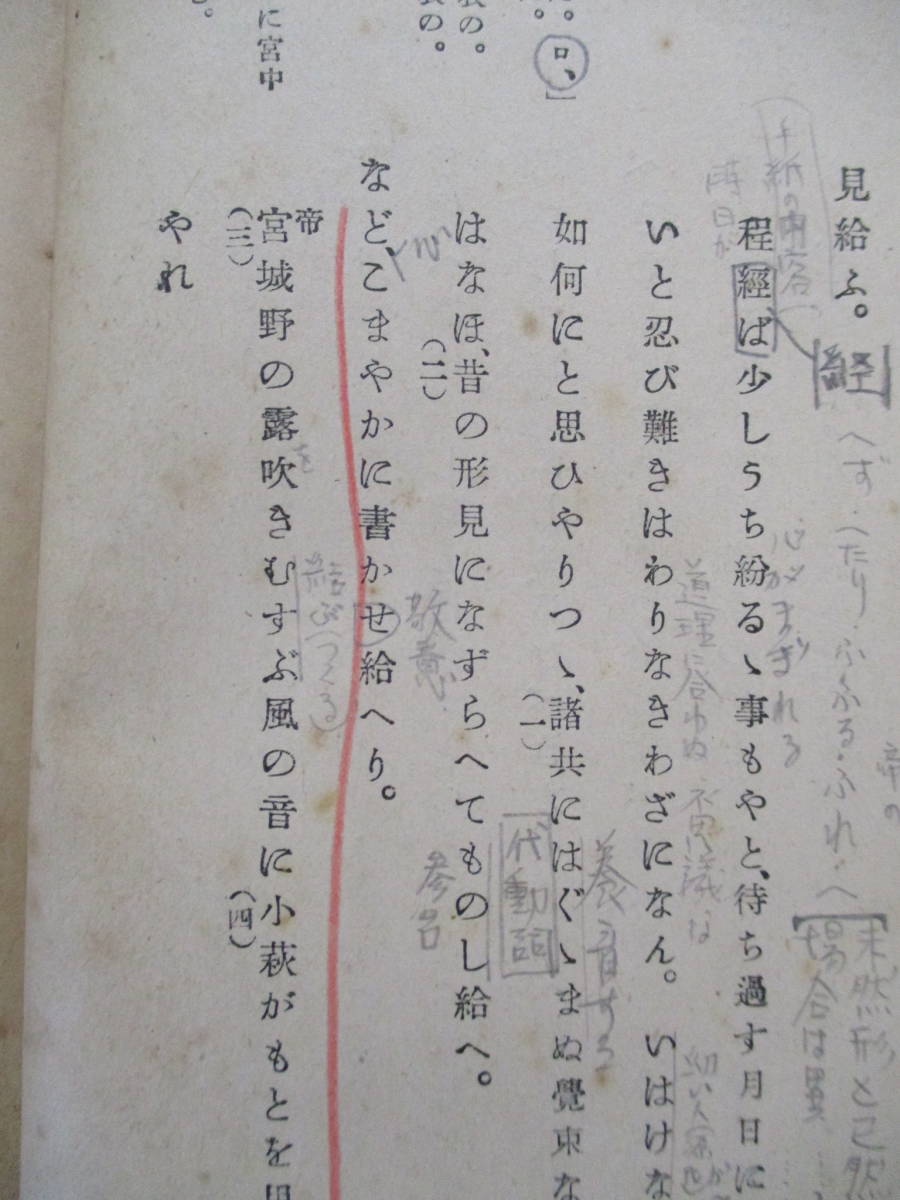 に宮中
衣の。
ロ、]
見給ふ。
程經ば少しうち紛るゝ事もやと、待ち過す月日に
いと忍び難きはわりなきわざになん。いはけな
如何にと思ひやりつゝ、諸共にはぐゝまぬ覺束な
(一)
はなほ、昔の形見になずらへてものし給へ。
(二)
など、こまやかに書かせ給へり。
帝
宮城野の露吹きむすぶ風の音に小萩がもとを思
(三)
(四)
やれ
手紙の内容
時日が
経
へず・へたり・ふ・ふる・ふれ・へ
未然形と已然
場合は異
帝の
心がまぎれる
道理に合わぬ
不思議な
幼い
養育する
代動詞
参台
敬意
を
結ぶ(つくる)